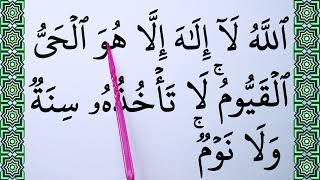 ٱللَّهُ لَآ إِلَـٰهَ إِلَّا هُوَ ٱلْحَىُّ
ٱلْقَيُّومُ ۚ لَا تَأْخُذُهُۥ سِنَةٌ
وَلَا نَوْمٌ ۚ